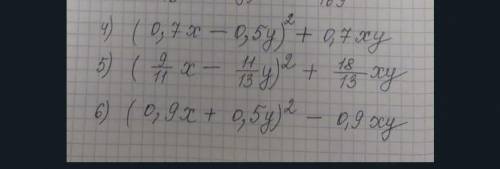 4) (0,7x − 0,5y)² + 0,7xy
5) (9/11 x − 11/13 y)² + 18/13 xy
6) (0,9x + 0,5y)² − 0,9xy